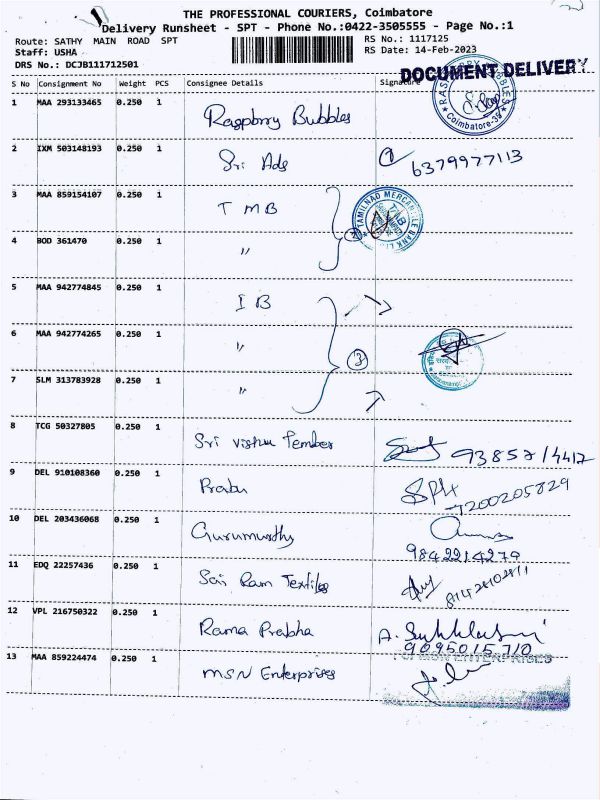 THE PROFESSIONAL COURIERS, Coimbatore
Delivery Runsheet - SPT - Phone No.:0422-3505555 - Page No.:1
Route: SATHY MAIN ROAD SPT
RS No.: 1117125
Staff: USHA
RS Date: 14-Feb-2023
DRS No.: DCJB111712501
DOCUMENT DELIVERY
S No Consignment No Weight PCS Consignee Details Signature
1 MAA 293133465 0.250 1 Raspbrry Bubbles
Coimbatore-35
2 IXM 503148193 0.250 1 Sri Ads 6379977113
3 MAA 859154107 0.250 1 T M B
TAMILNAD MERCANTILE BANK
4 BOD 361470 0.250 1 〃 2
5 MAA 942774845 0.250 1 I B
6 MAA 942774265 0.250 1 〃 3
7 SLM 313783928 0.250 1 〃
8 TCG 50327805 0.250 1 Sri vishnu Tember 93857/4417
9 DEL 910108360 0.250 1 Prabu 7200205829
10 DEL 203436068 0.250 1 Gurumurthy
9842214279
11 EDQ 22257436 0.250 1 Sai Ram Textiles
12 VPL 216750322 0.250 1 Rama Prabha
9095015710
13 MAA 859224474 0.250 1 MSN Enterprises